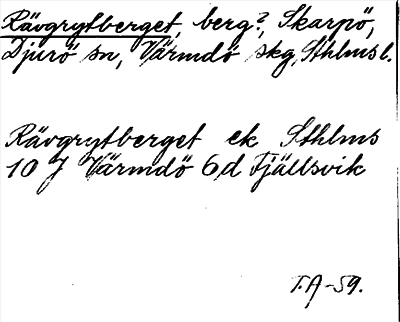 Rävgrytberget, berg?, Skarpö,
Djurö sn, Värmdö skg, Sthlms l.
Rävgrytberget ek Sthlms
10 J Värmdö 6d Fjällsvik
T.A-59.